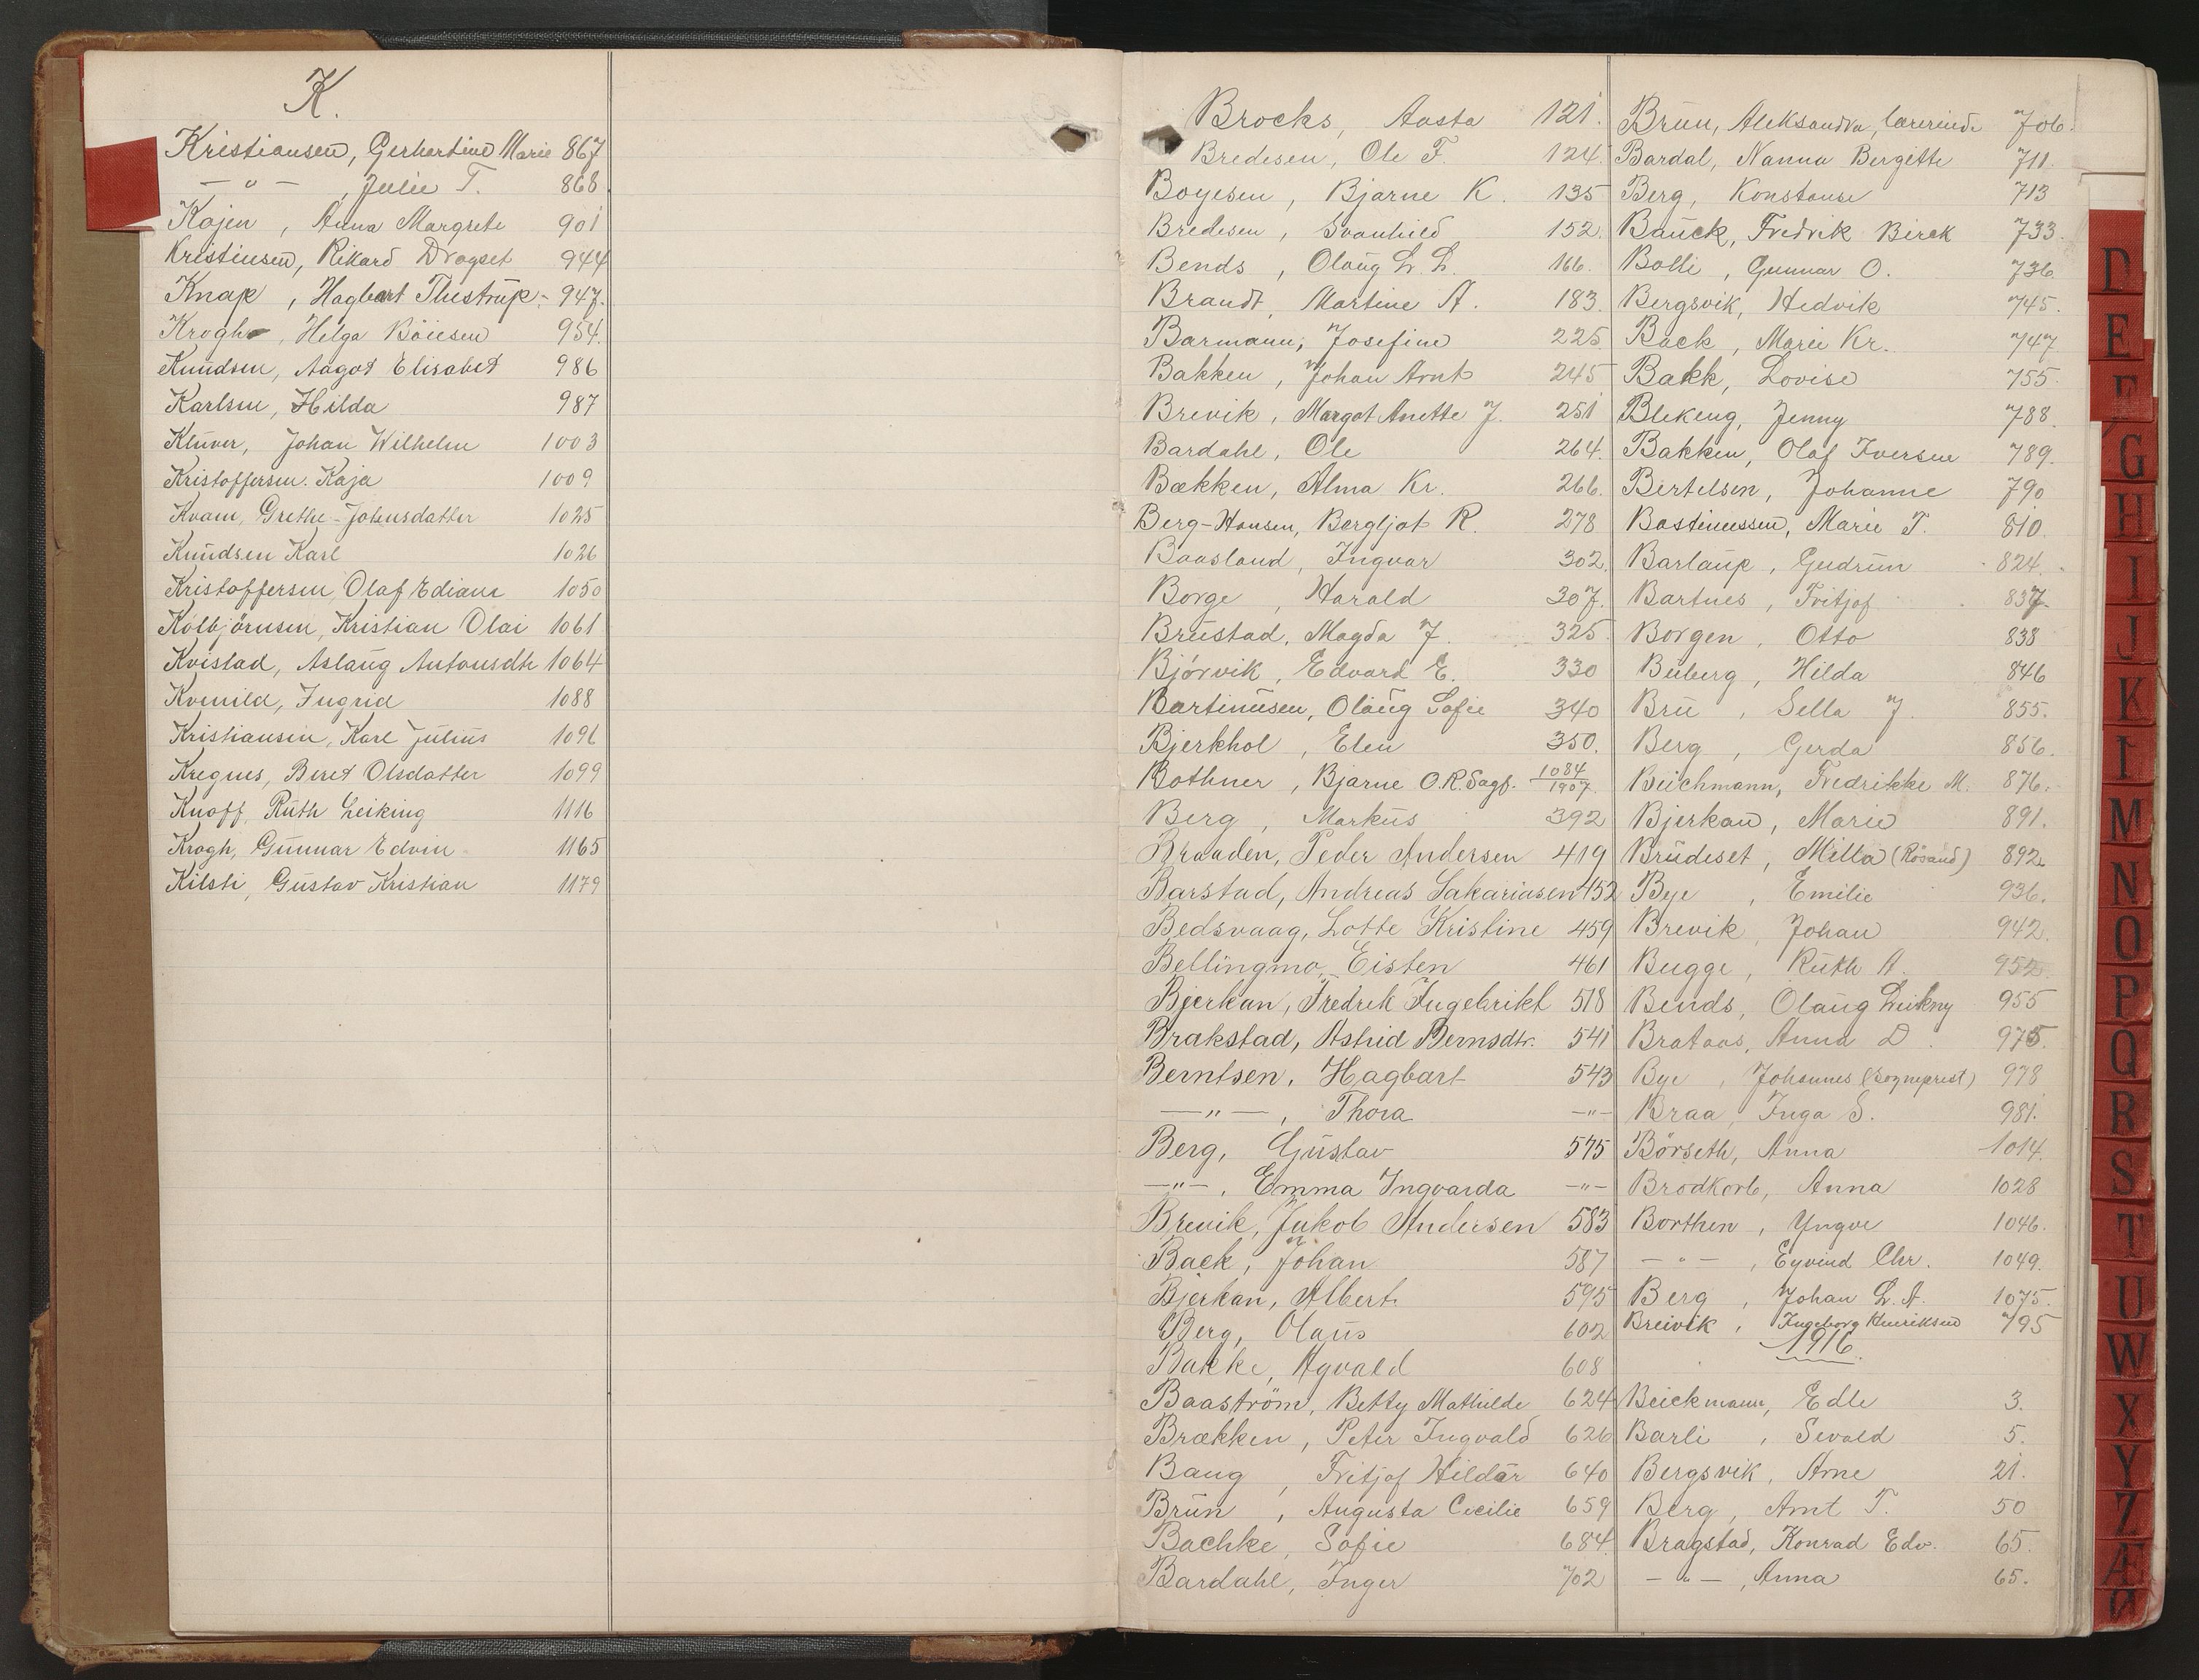 K.
Kristiansen, Gerhartine Marie 867
— " — , Julie T. 868
Kojen , Anna Margrete 901
Kristiensen, Rikard Dragset 944
Knap , Hagbart Thestrup 947.
Krogh , Helga Böiesen 954.
Knudsen, Aagot Elisabet 986
Karlsen, Hilda 987
Klüver, Johan Wilhelm 1003
Kristoffersen. Kaja 1009
Kvam, Grethe Johnsdatter 1025
Knudsen Karl 1026
Kristoffersen, Olaf Edians 1050
Kolbjörnsen, Kristian Olai 1061
Kvistad, Aslaug Antonsdtr 1064
Kvenild, Ingrid 1088
Kristiansen, Karl Julius 1096
Kregnes, Beret Olsdatter 1099
Knoff, Ruth Leiking 1116
Krogh, Gunnar Edvin 1165
Kilsti, Gustav Kristian 1179
Brocks, Aasta 121.
Bredesen, Ole F. 124.
Boyesen, Bjarne K. 135
Bredesen, Svanhild 152.
Bends , Olaug L. L. 166.
Brandt, Martine A. 183.
Barmann, Josefine 225.
Bakken , Johan Arnt 245
Brevik , Margot Anette J. 251
Bardahl, Ole 264.
Bækken, Alma Kr. 266.
Berg-Hansen, Bergljot R. 278
Baasland, Ingvar 302.
Borge , Harald 307.
Brustad, Magda J. 325
Bjórvik, Edvard E. 330
Bartinusen, Olaug Sofie 340
Bjerkhol , Elen 350.
Bothner , Bjarne O.R. Sagf. 1084/1907
Berg , Markus 392
Braaden, Peder Andersen 419
Barstad, Andreas Sakariasen 452
Bedsvaag, Lotte Kristine 459
Bellingmo, Eisten 461
Bjerkan, Fredrik Ingebrikt 518
Brakstad, Astrid Bernsdtr. 541
Berntsen, Hagbart 543
— " — , Thora — " —
Berg, Gustav 575
— " — , Emma Ingvarda — " —
Brevik, Jakob Andersen 583
Back, Johan 587
Bjerkan, Albert 595
Berg, Olaus 602
Bakke, Agvald 608
Baaström, Betty Mathilde 624
Brækken, Peter Ingvald 626
Baug , Fritjof Hildar 640
Brun , Augusta Cecilie 659
Bachke, Sofie 684.
Bardahl, Inger 702
Brun, Aleksandra, lærerinde 706.
Bardal, Nanna Bergitte 711.
Berg, Konstanse 713
Bauck, Fredrik Birck 733.
Bolli , Gunnar O. 736.
Bergsvik, Hedvik 745.
Back , Marie Kr. 747
Bakk, Lovise 755.
Blekeng, Jenny 788.
Bakken, Olaf Iversen 789.
Bertelsen, Johanne 790
Bastinussen, Marie T. 810.
Barlaup, Gudrun 824.
Bartnes, Fritjof 837.
Borgen , Otto 838
Buberg , Hilda 846
Bru , Sella J. 855.
Berg , Gerda 856.
Beichmann, Fredrikke M. 876.
Bjerkan, Marie 891.
Brudeset, Milla (Rösand) 892.
Bye , Emilie 936.
Brevik, Johan 942.
Bugge, Ruth A. 952.
Bends, Olaug Leikny 955
Brataas, Anna D. 975.
Bye , Johannes (sogneprest) 978
Braa, Inga S. 981.
Börseth, Anna 1014.
Brodkorb, Anna 1028
Borthen , Yngve 1046.
— " — , Eyvind Chr. 1049.
Berg , Johan L. A. 1075.
Breivik , Ingeborg Henriksen 795
1916.
Beickmann, Edle 3.
Barli , Sevald 5.
Bergsvik, Arne 21.
Berg, Arnt T. 50
Bragstad, Konrad Edv. 65.
— " — , Anna 65.
D
E
F
G
H
I
J
K
M
N
O
P
Q
R
S
T
U
W
X
Y
Z
Æ
Ø